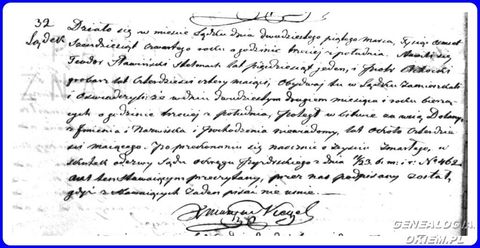 32
Sądek
Działo się w mieście Sądku dnia dwudziestego piątego Marca, Tysiąc ośmset
sześdziesiąt czwartego roku o godzinie trzeciej z południa. Stawili się
Teodor Sławiński lat pięćdziesiąt jeden, i
grobarz lat czterdzieści cztery mający, Obydwaj tu w Sądku Zamieszkali
i Oświadczyli że w dniu dwudziestym drugim miesiąca i roku bieżą-
cych o godzinie trzeciej z południa, Poległ w bitwie za wsią
z Imienia i Nazwiska i Pochodzenia niewiadomy, lat około Czterdzie-
ści mającego. Po przekonaniu się naocznie o zejściu Zmarłego, w
skutek odezwy Sądu z dnia b. m. i r. No 462
Akt ten stawającym przeczytany, przez nas podpisany został,
gdyż z stawających żaden pisać nie umie.
GENEALOGIA
OKIEM.PL